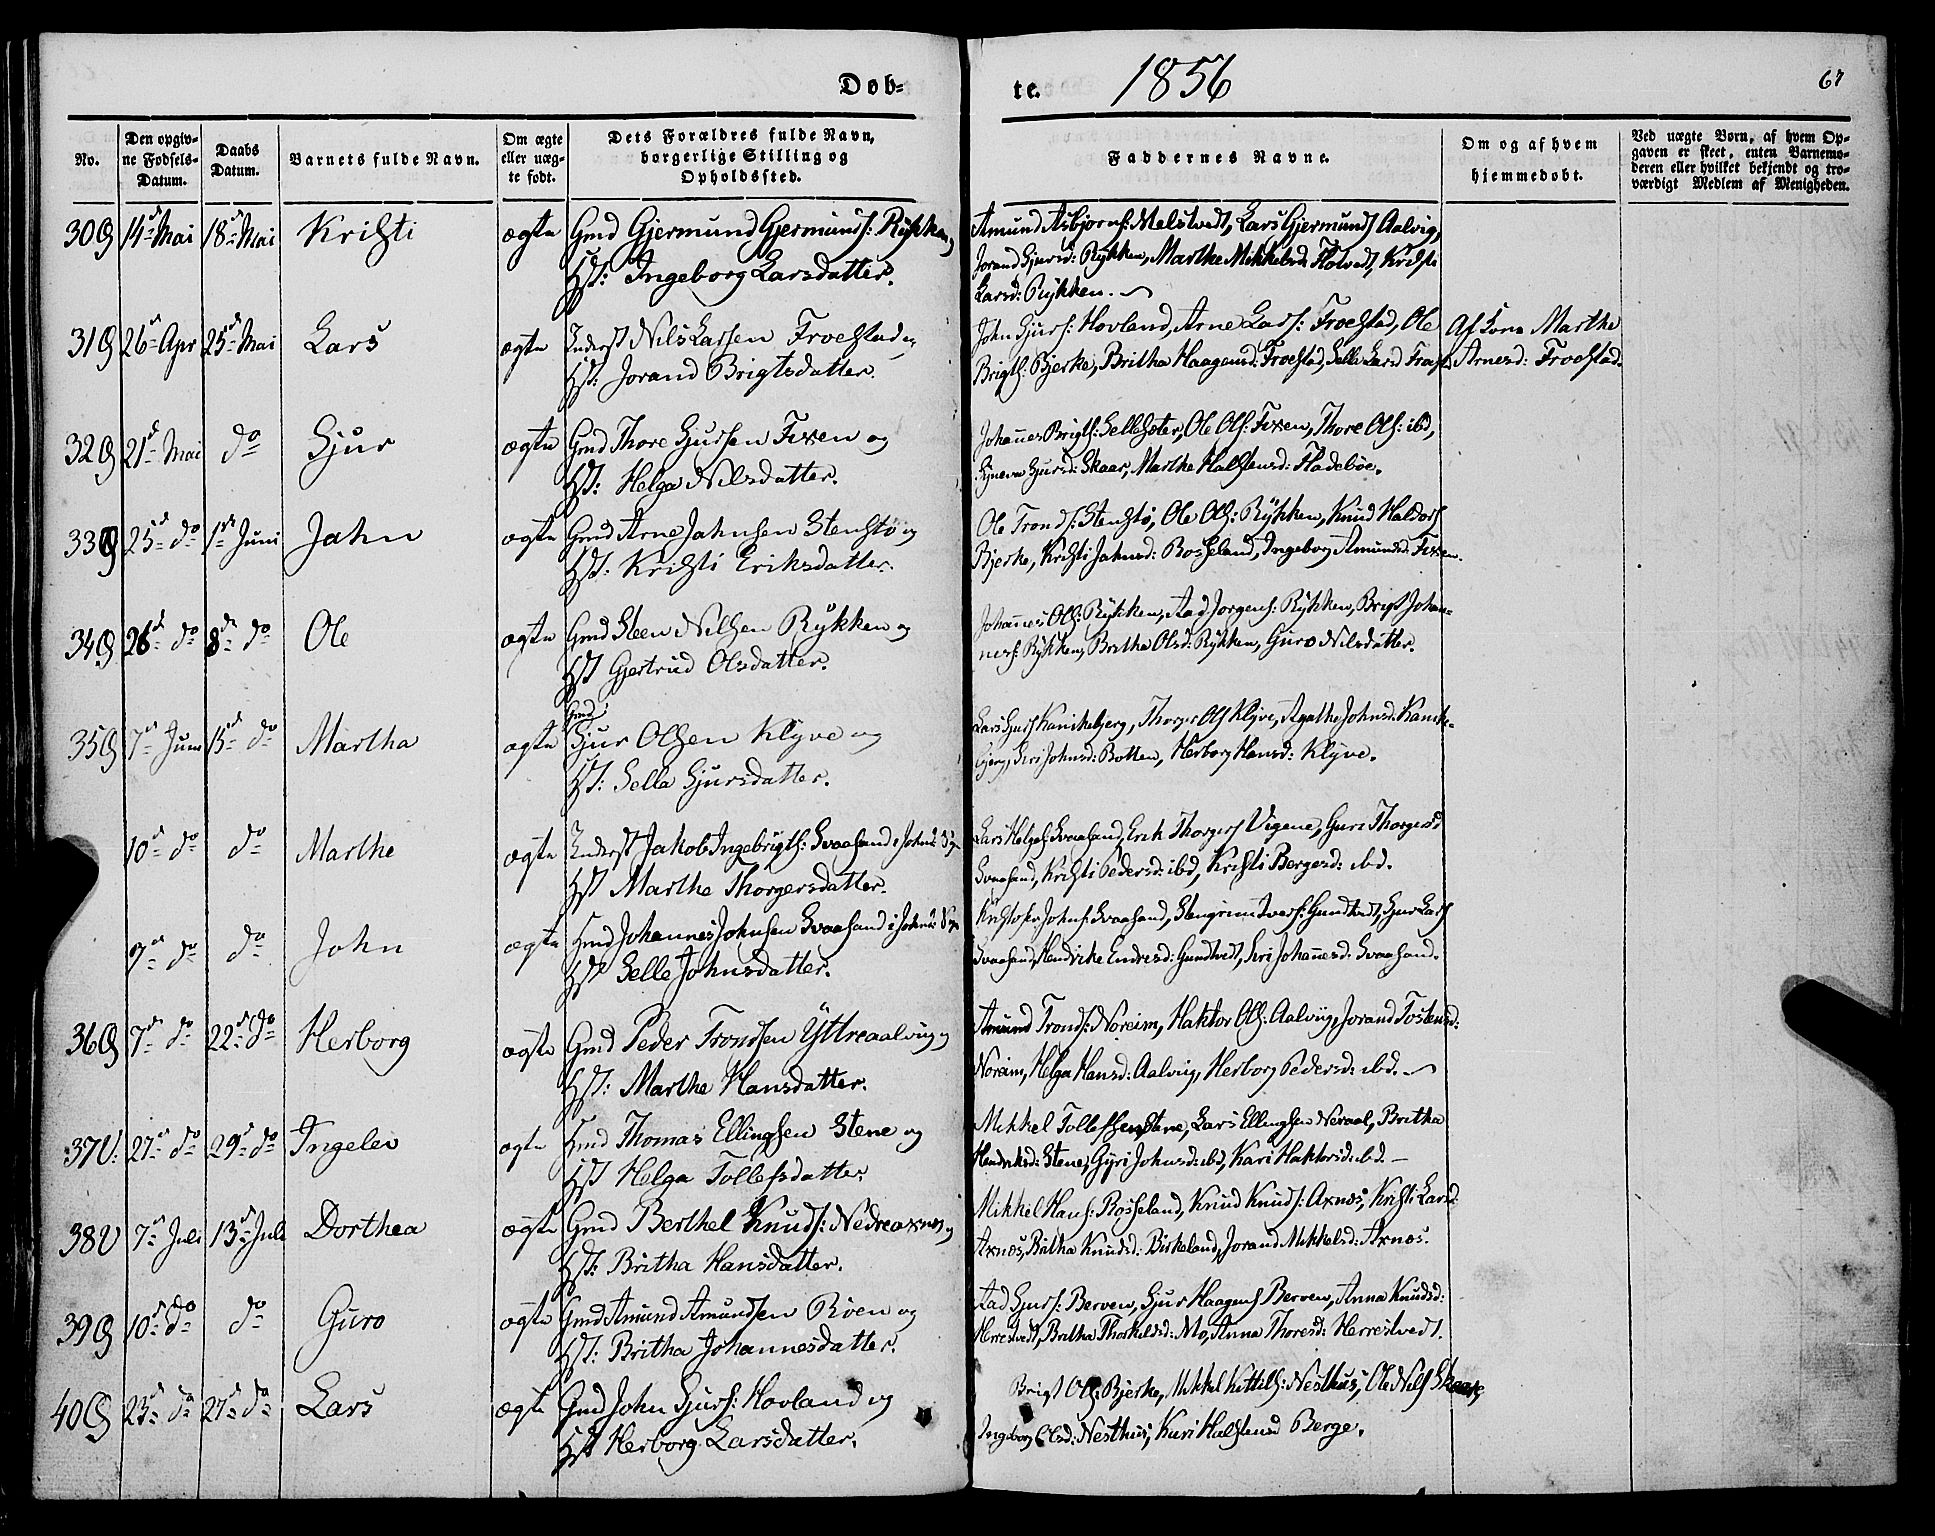 Døb-
te.
1856
67
No.
Den opgiv-
ne Fødsels-
Datum.
Daabs
Datum.
Barnets fulde Navn.
Om ægte
eller uæg-
te født.
Dets Forældres fulde Navn,
borgerlige Stilling og
Opholdssted.
Faddernes Navne.
Om og af hvem
hjemmedøbt.
Ved uægte Børn, af hvem Op-
gaven er skeet, enten Barnemo-
deren eller hvilket bekjendt og tro-
værdigt Medlem af Menigheden.
30 G 14d Mai 18d Mai Kristi ægte Gmd Gjermund Gjermunds: Rykken og
Hst: Ingeborg Larsdatter.
Amund Asbjørns: Melstvedt, Lars Gjermunds Aalvig,
Jorand Sjursd: Rykken, Marthe Mikkelsd: Flotvedt, Kristi
Larsd: Rykken.
31 G 26d Apr 25d Mai Lars ægte Inderst Nils Larsen Froestad og
Hst: Jorand Brigtsdatter.
John Sjurs: Hovland, Arne Lars: Froestad, Ole
Brigts: Bjerke, Britha Haagensd: Froestad, Selle Larsd Froest:
Af Kone Marthe
Arnesd: Froestad.
32 G 21d Mai do Sjur ægte Gmd Thore Sjursen Fixen og
Hst: Helga Nilsdatter.
Johannes Brigts: Selleseter, Ole Ols: Fixen, Thore Ols: ibd,
Synneva Sjursd: Skaar, Marthe Halstensd: Fladebøe.
33 G 25d do 1ste Juni Jahn ægte Gmd Arne Jahnsen Stenstø og
Hst: Kristi Eriksdatter.
Ole Tronds: Stenstø, Ole Ols: Rykken, Knud Haldors
Bjerke, Kristi Jahnsd: Rosseland, Ingeborg Amundsd: Fixen.
34 G 26d do 8d do Ole ægte Gmd Steen Nilsen Rykken og
Hst Gjertrud Olsdatter.
Johannes Ols: Rykken, Aad Jørgens: Rykken, Brigt Johan-
ness: Rykken, Britha Olsd: Rykken, Guro Nilsdatter.
35 G 7d Juni 15d do Martha ægte Gmd Sjur Olsen Klyve og
Hst: Sella Sjursdatter.
Lars Sjurs Kanikebjerg, Thorger Ols Klyve, Agathe Johnsd: Kanike-
bjerg, Siri Johnsd: Botten, Herborg Hansd: Klyve.
10d do do Marthe ægte Inderst Jakob Ingebrigts: Svaasand i Jondal Sgn
Hst Marthe Thorgersdatter.
Lars Helges: Svaasand, Erik Thorgers Vigene, Guri Thorgersd:
Svaasand, Kristi Pedersd: ibd, Kristi Bergesd: ibd.
9d do do John ægte Hmd Johannes Johnsen Svaasand i Jondal Sgn
Hst Selle Johnsdatter.
Kristofer Johns: Svaasand, Stengrim Ivers: Gundtvedt, Sjur Lars
Svaasand, Hendrike Endresd: Gundtvedt, Siri Johannesd: Svaasand.
36 G 7d do 22d do Herborg ægte Gmd Peder Trondsen Yttreaalvig og
Hst: Marthe Hansdatter.
Amund Tronds: Noreim, Haktor Ols: Aalvig, Jorand Tostensd:
Noreim, Helga Hansd: Aalvig, Herborg Pedersd: ibd.
37 U: 27d do 29d do Ingelev ægte Hmd Thomas Ellingsen Stene og
Hst Helga Tollefsdatter.
Mikkel Tollefsen Stene, Lars Ellingsen Neraal, Britha
Hendriksd: Stene, Gyri Johnsd: ibd, Kari Haktorsd: ibd.
38 U 7d Juli 13d Juli Dorthea ægte Gmd Berthel Knuds: Nedreaxnes og
Hst: Britha Hansdatter.
Mikkel Hans: Rosseland, Knud Knuds: Axnæs, Kristi Larsd:
Axnæs, Britha Knudsd: Birkeland, Jorand Mikkelsd: Axnæs.
39 G 10d do do Guro ægte Gmd Amund Amundsen Røen og
Hst: Britha Johannesdatter.
Aad Sjurs: Berven, Sjur Haagens Berven, Anna Knudsd:
Herrestvedt, Britha Thorkeldsd: Mo, Anna Thoresd: Herrestvedt.
40 G 23d do 27d do Lars ægte Gmd John Sjurs: Hovland og
Hst Herborg Larsdatter.
Brigt Ols: Bjerke, Mikkel Kittils: Nesthus, Ole Nils Skaare,
Ingeborg Olsd: Nesthus, Kari Halstensd Berge.